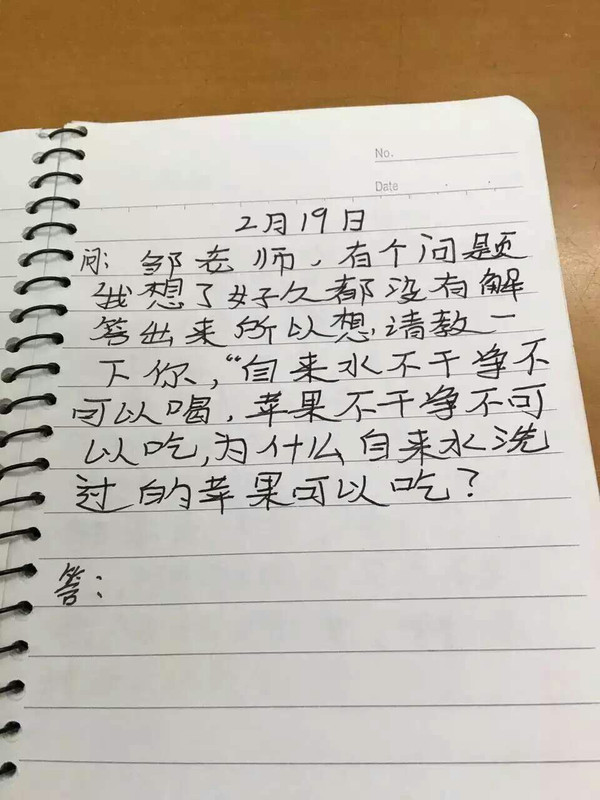 No.
Date
2月19日
问：邹老师，有个问题
我想了好久都没有解
答出来所以想请教一
下你，“自来水不干净不
可以喝，苹果不干净不可
以吃，为什么自来水洗
过的苹果可以吃？
答：